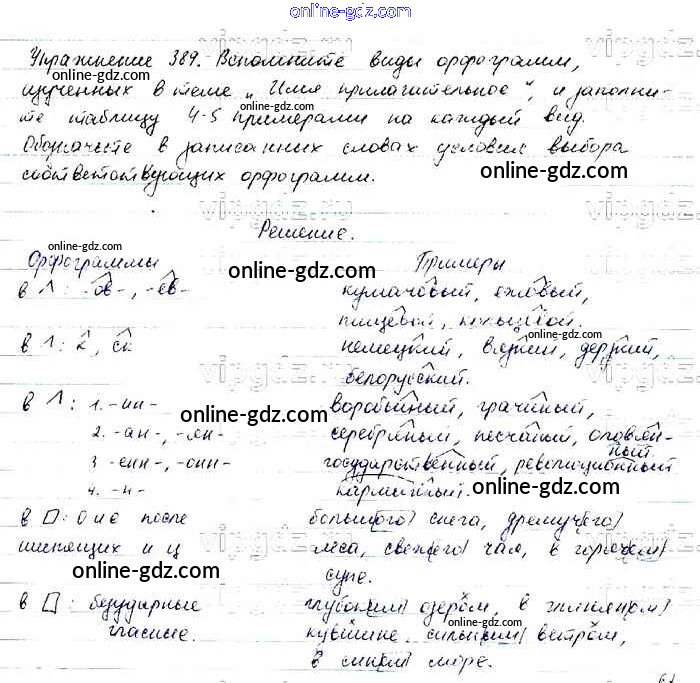 online-gdz.com
Упражнение 389. Вспомните виды орфограмм,
online-gdz.com
изученных в теме „Имя прилагательное“, и заполни-
те таблицу 4-5 примерами на каждый вид.
Обозначьте в записанных словах условия выбора
соответствующих орфограмм. online-gdz.com
Решение.
online-gdz.com
Орфограммы Примеры
online-gdz.com
в ^: -ов-, -ев- кумачовый, еловый,
пищевой, кольцевой.
online-gdz.com
в ^: к, ск немецкий, вязкий, дерзкий,
белорусский.
в ^: 1. -ин- воробьиный, грачиный,
online-gdz.com
2. -ан-, -ян- серебряный, песчаный, оловян-
ный
3 -енн-, -онн- государственный, революционный
4. -н- карманный.
online-gdz.com
в □: О и е после большого снега, дремучего
шипящих и ц леса, свежего чая, в горячем
online-gdz.com
супе.
в □: безударные глубоким озером, в глиняном
гласные. кувшине, сильным ветром,
online-gdz.com
в синем море.